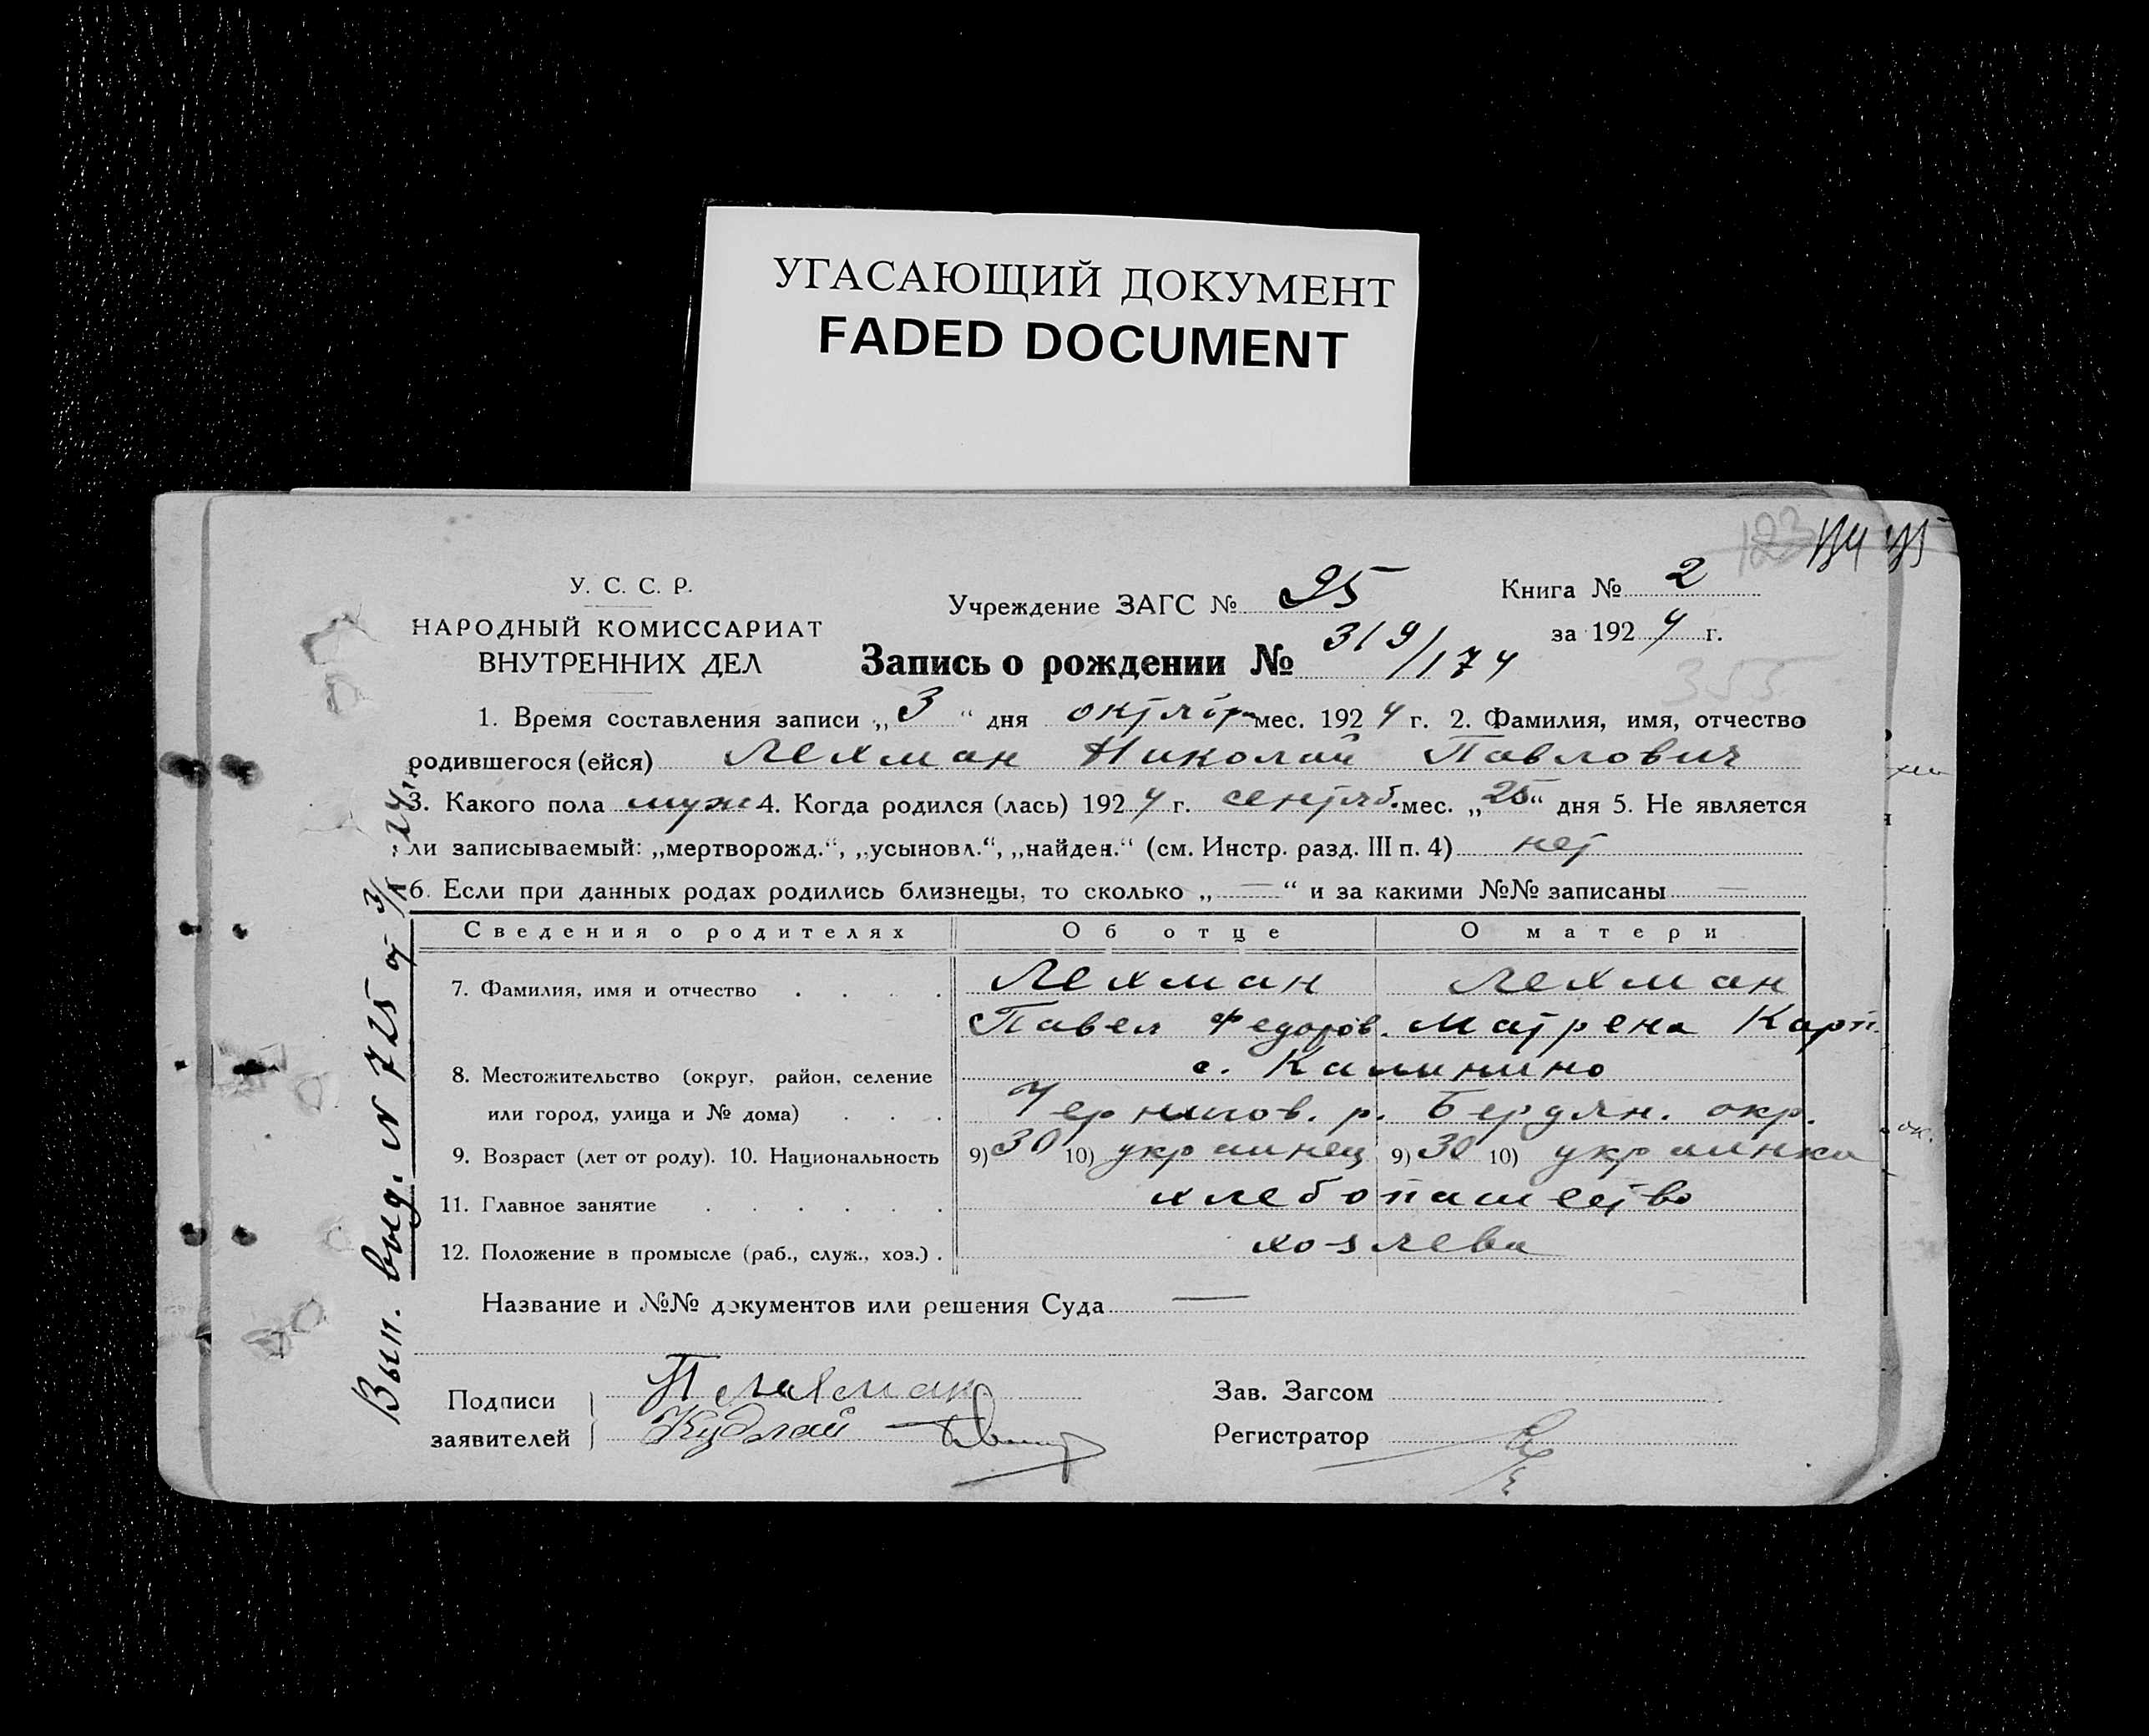 УГАСАЮЩИЙ ДОКУМЕНТ
FADED DOCUMENT
123
У. С. С. Р.
НАРОДНЫЙ КОМИССАРИАТ
ВНУТРЕННИХ ДЕЛ
Учреждение ЗАГС № 25
Книга № 2
за 1924 г.
Запись о рождении № 319/174
355
1. Время составления записи „3“ дня октября мес. 1924 г. 2. Фамилия, имя, отчество
родившегося (ейся) Лехман Николай Павлович
3. Какого пола муж 4. Когда родился (лась) 1924 г. сентяб. мес. „25“ дня 5. Не является
ли записываемый: „мертворожд.“, „усыновл.“, „найден.“ (см. Инстр. разд. III п. 4) нет
6. Если при данных родах родились близнецы, то сколько „—“ и за какими №№ записаны —
Сведения о родителях Об отце О матери
7. Фамилия, имя и отчество Лехман Лехман
Павел Федоров. Матрена Карп.
8. Местожительство (округ, район, селение с. Калинино
или город, улица и № дома) Чернигов. р. Бердян. окр.
9. Возраст (лет от роду). 10. Национальность 9) 30 10) украинец 9) 30 10) украинка
11. Главное занятие хлебопашество
12. Положение в промысле (раб., служ., хоз.) хозяева
Название и №№ документов или решения Суда —
Подписи заявителей П Лехман
Кудлай
Зав. Загсом
Регистратор
Вып. выд. № 725 от 3/X-24 г.